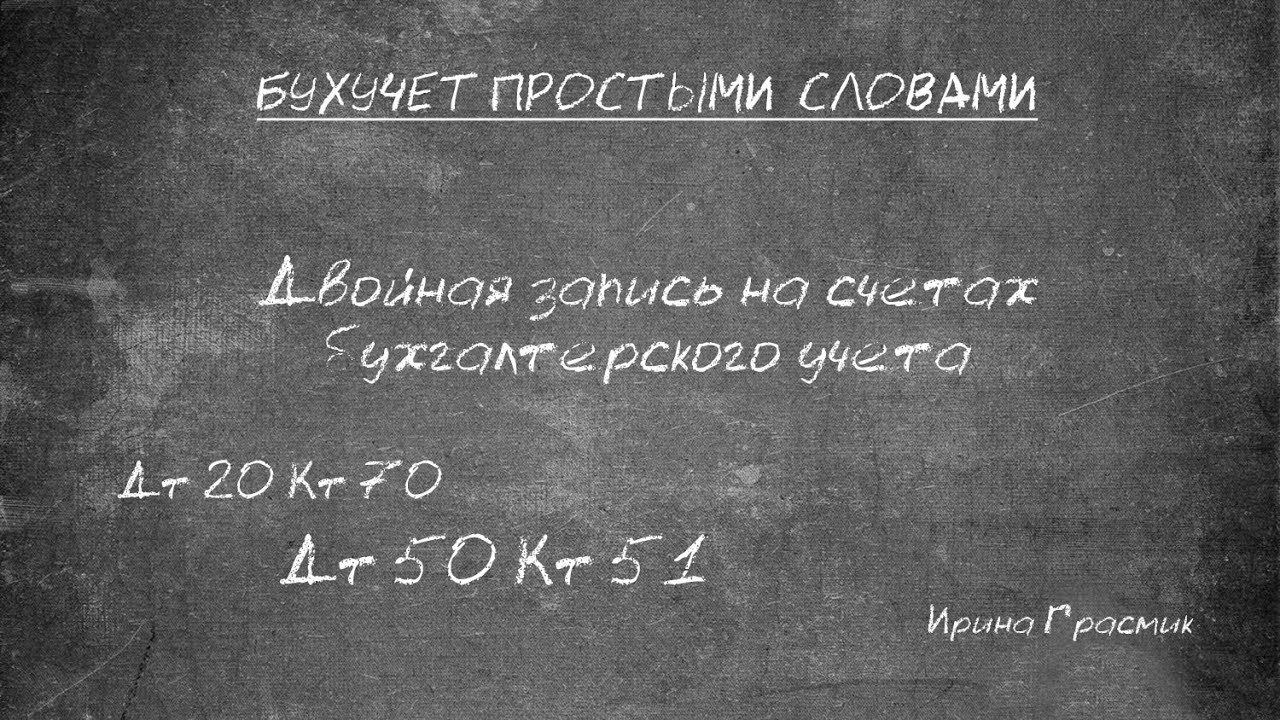 БУХУЧЕТ ПРОСТЫМИ СЛОВАМИ
Двойная запись на счетах
бухгалтерского учета
Дт 20 Кт 70
Дт 50 Кт 51
Ирина Грасмик